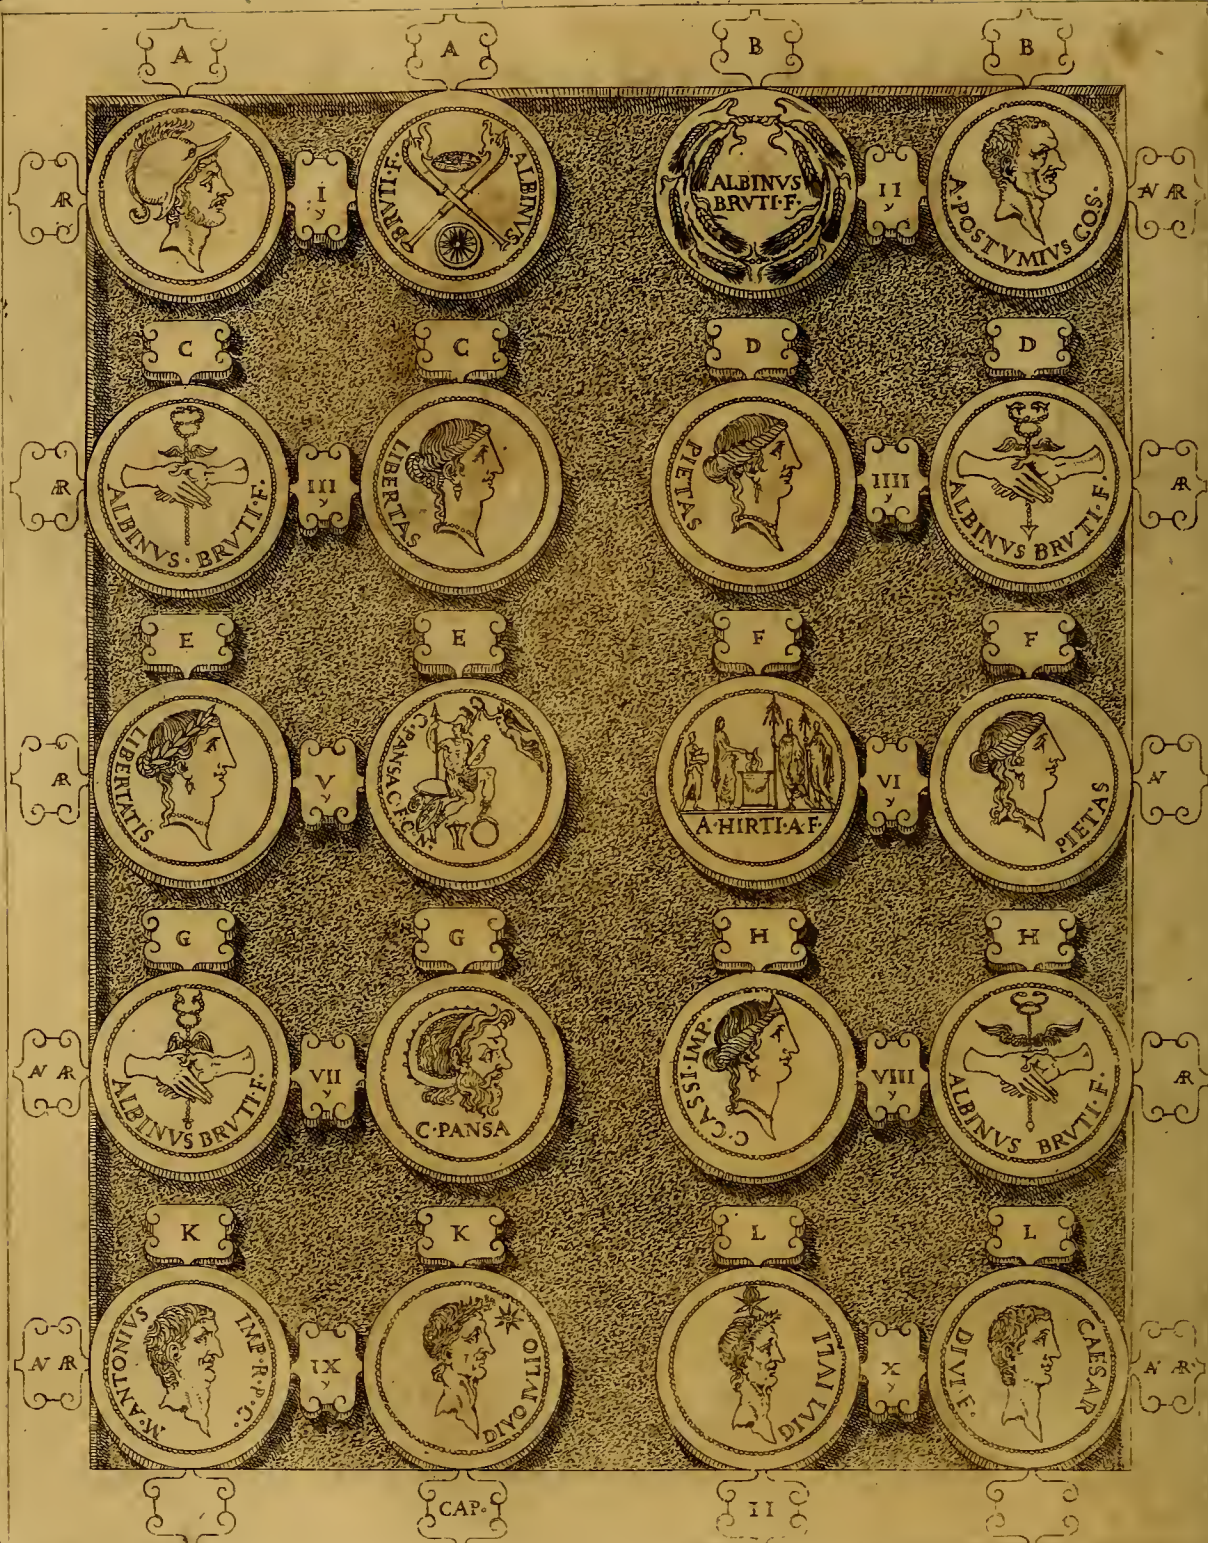 A A B B
ÆR
I
y
BRVTI·F·
ALBINVS
ALBINVS
BRVTI·F·
II
y
A·POSTVMIVS COS·
AV ÆR
C C D D
ÆR
ALBINVS·BRVTI·F·
III
y
LIBERTAS
PIETAS
IIII
y
ALBINVS BRVTI·F·
ÆR
E E F F
ÆR
LIBERTATIS
V
y
C·PANSA·C·F·C·N·
A·HIRTI·A·F·
VI
y
PIETAS
AV
G G H H
AV ÆR
ALBINVS BRVTI·F·
VII
y
C·PANSA
C·CASSI·IMP·
VIII
y
ALBINVS BRVTI·F·
ÆR
K K L L
AV ÆR
M·ANTONIVS
IMP·R·P·C·
IX
y
DIVO IVLIO
DIVI IVLI
X
y
DIVI·F·
CAESAR
AV ÆR
CAP· II